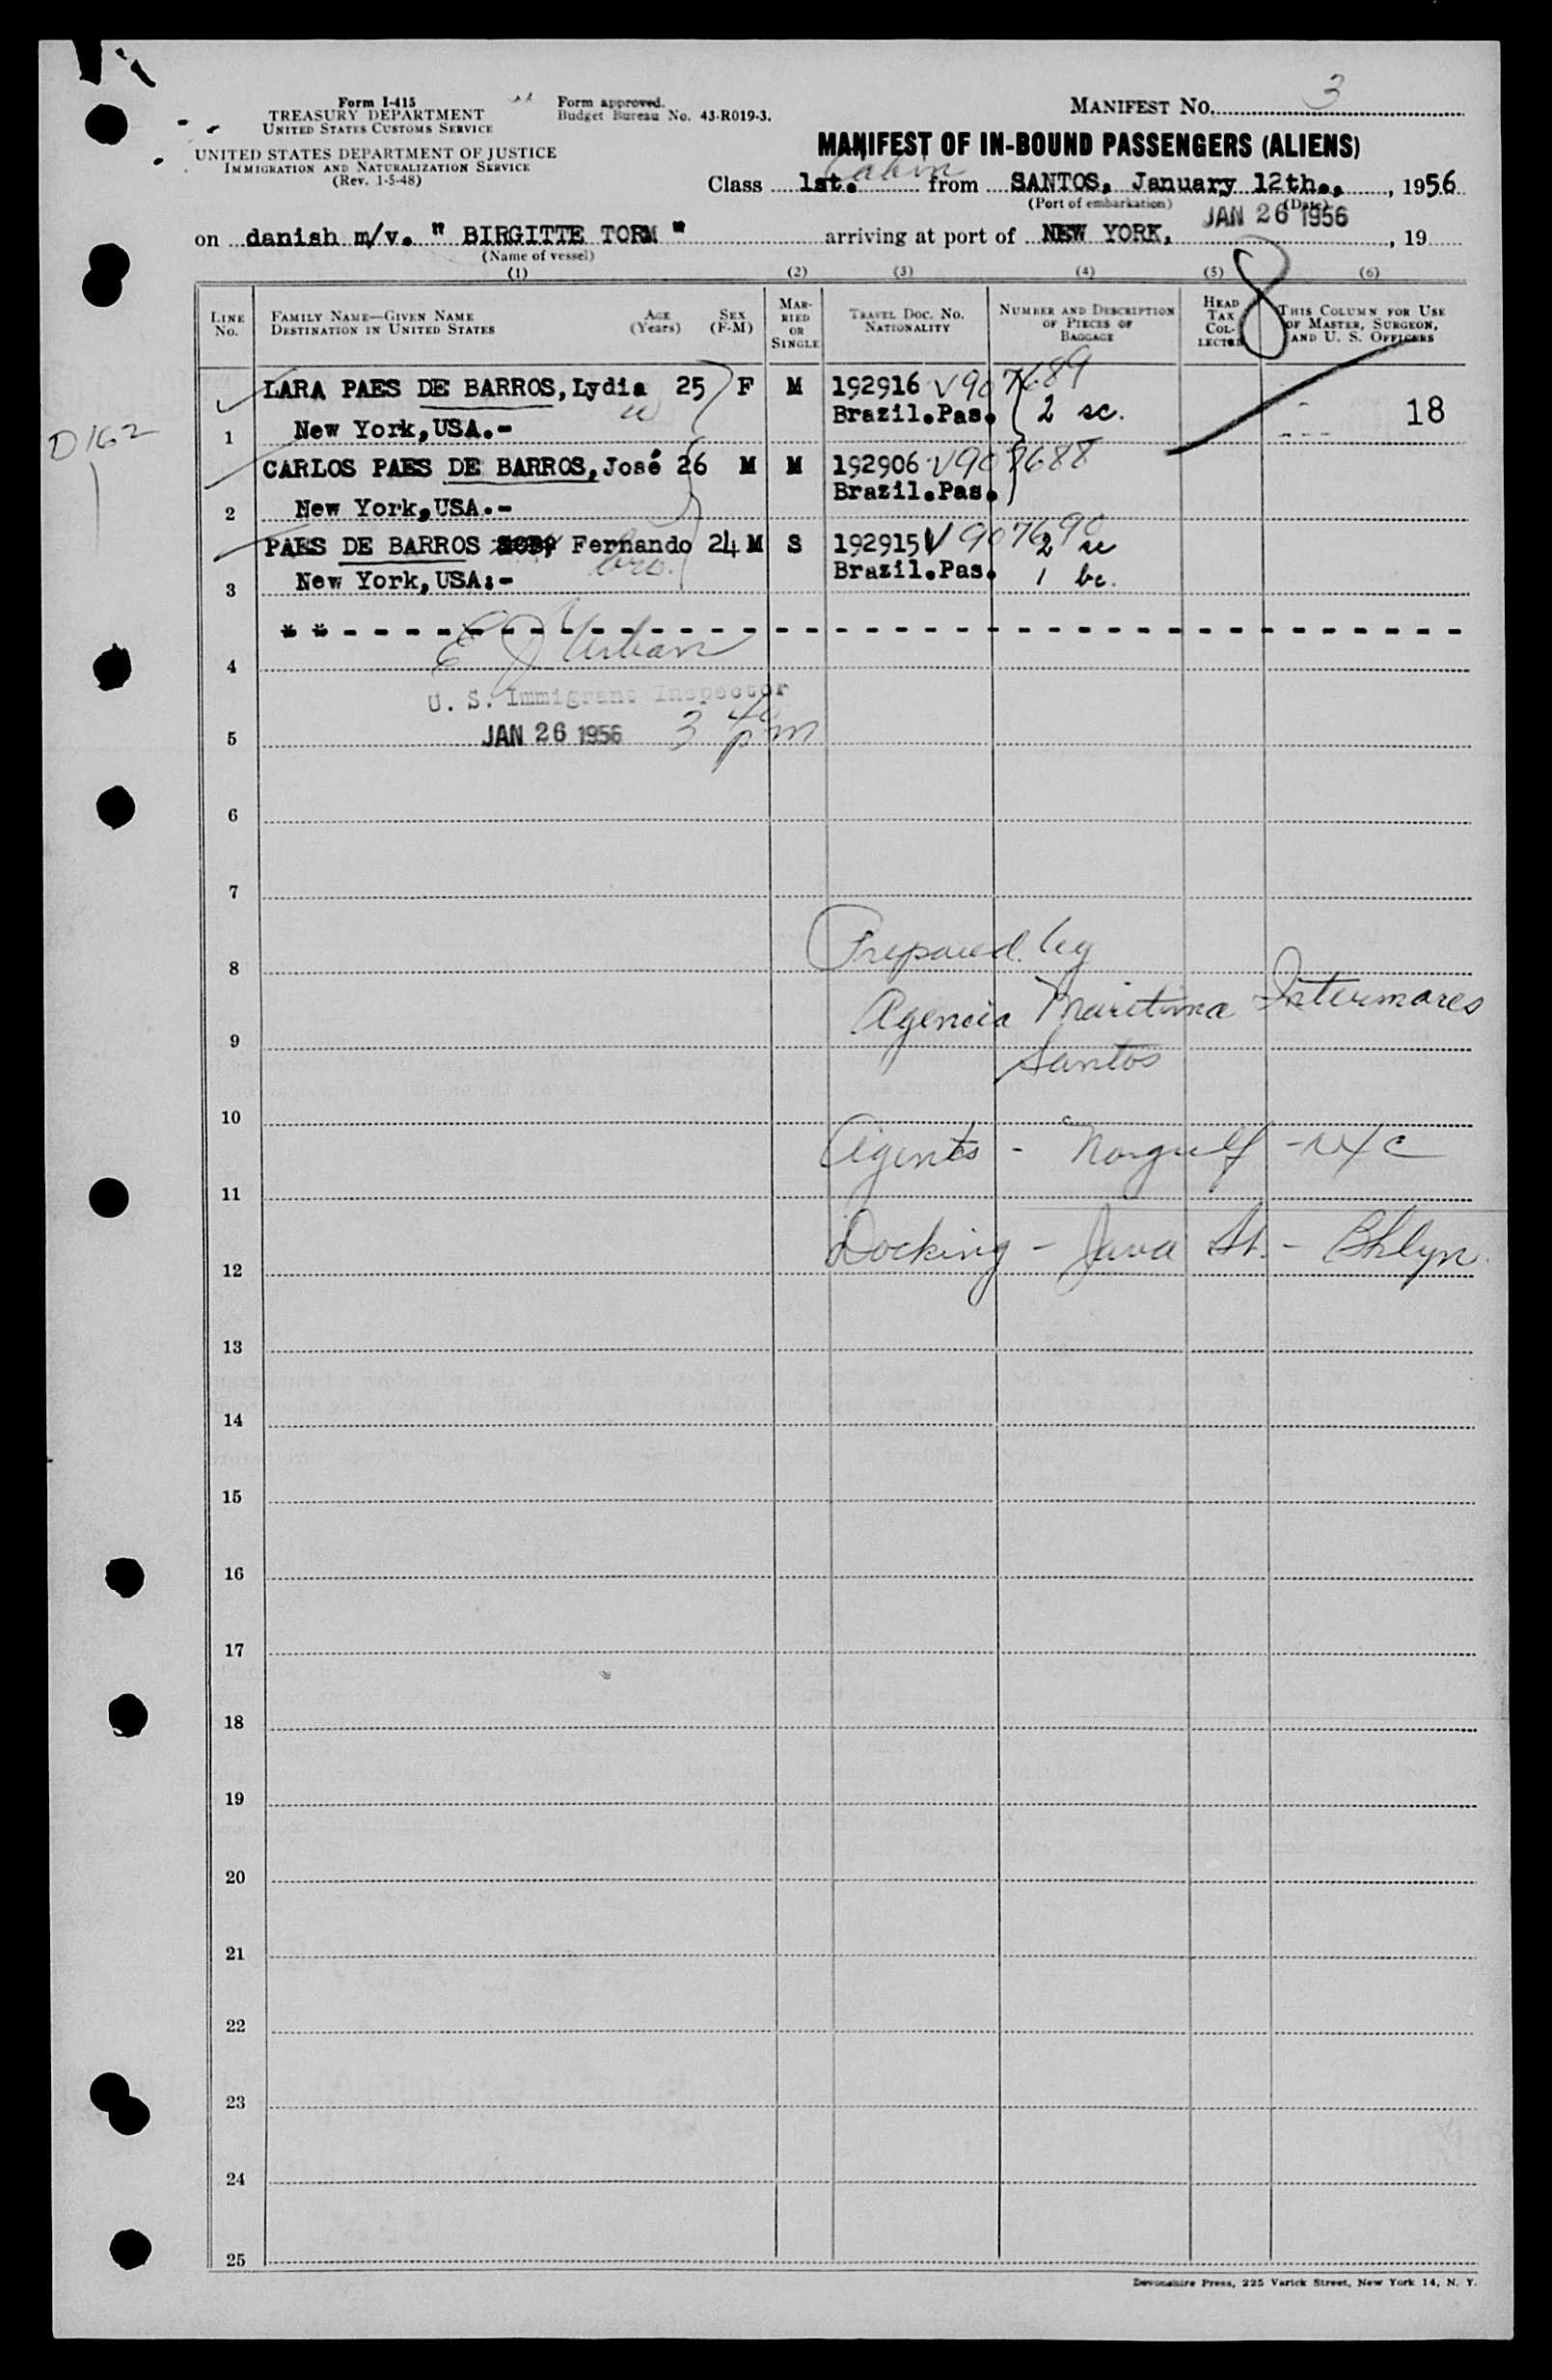 Form I-415
TREASURY DEPARTMENT
UNITED STATES CUSTOMS SERVICE
UNITED STATES DEPARTMENT OF JUSTICE
IMMIGRATION AND NATURALIZATION SERVICE
(Rev. 1-5-48)
Form approved.
Budget Bureau No. 43-R019-3.
MANIFEST No. 3
MANIFEST OF IN-BOUND PASSENGERS (ALIENS)
Cabin
Class 1st. from SANTOS, January 12th., , 1956
(Port of embarkation) (Date)
JAN 26 1956
on danish m/v. " BIRGITTE TORM " arriving at port of NEW YORK, , 19
(Name of vessel)
(1) (2) (3) (4) (5) (6)
8
LINE No.
FAMILY NAME—GIVEN NAME
DESTINATION IN UNITED STATES
AGE (Years)
SEX (F-M)
MARRIED OR SINGLE
TRAVEL DOC. NO.
NATIONALITY
NUMBER AND DESCRIPTION OF PIECES OF BAGGAGE
HEAD TAX COLLECTED
THIS COLUMN FOR USE OF MASTER, SURGEON, AND U. S. OFFICERS
D162
LARA PAES DE BARROS, Lydia 25 F M 192916 V907689
w Brazil.Pas. 2 sc. 18
1 New York,USA.-
CARLOS PAES DE BARROS, José 26 M M 192906 V907688
Brazil.Pas.
2 New York,USA.-
PAES DE BARROS Fernando 24 M S 192915 V907690
2 sc
bro. Brazil.Pas. 1 bc.
3 New York,USA:-
4 E J Urban
U. S. Immigrant Inspector
5 JAN 26 1956 3 40 pm
6
7
Prepared by
8
Agencia Maritima Intermares
9
Santos
10
Agents - Norgulf - NYC
11
Docking - Java St. - Bklyn
12
13
14
15
16
17
18
19
20
21
22
23
24
25
Devonshire Press, 225 Varick Street, New York 14, N. Y.